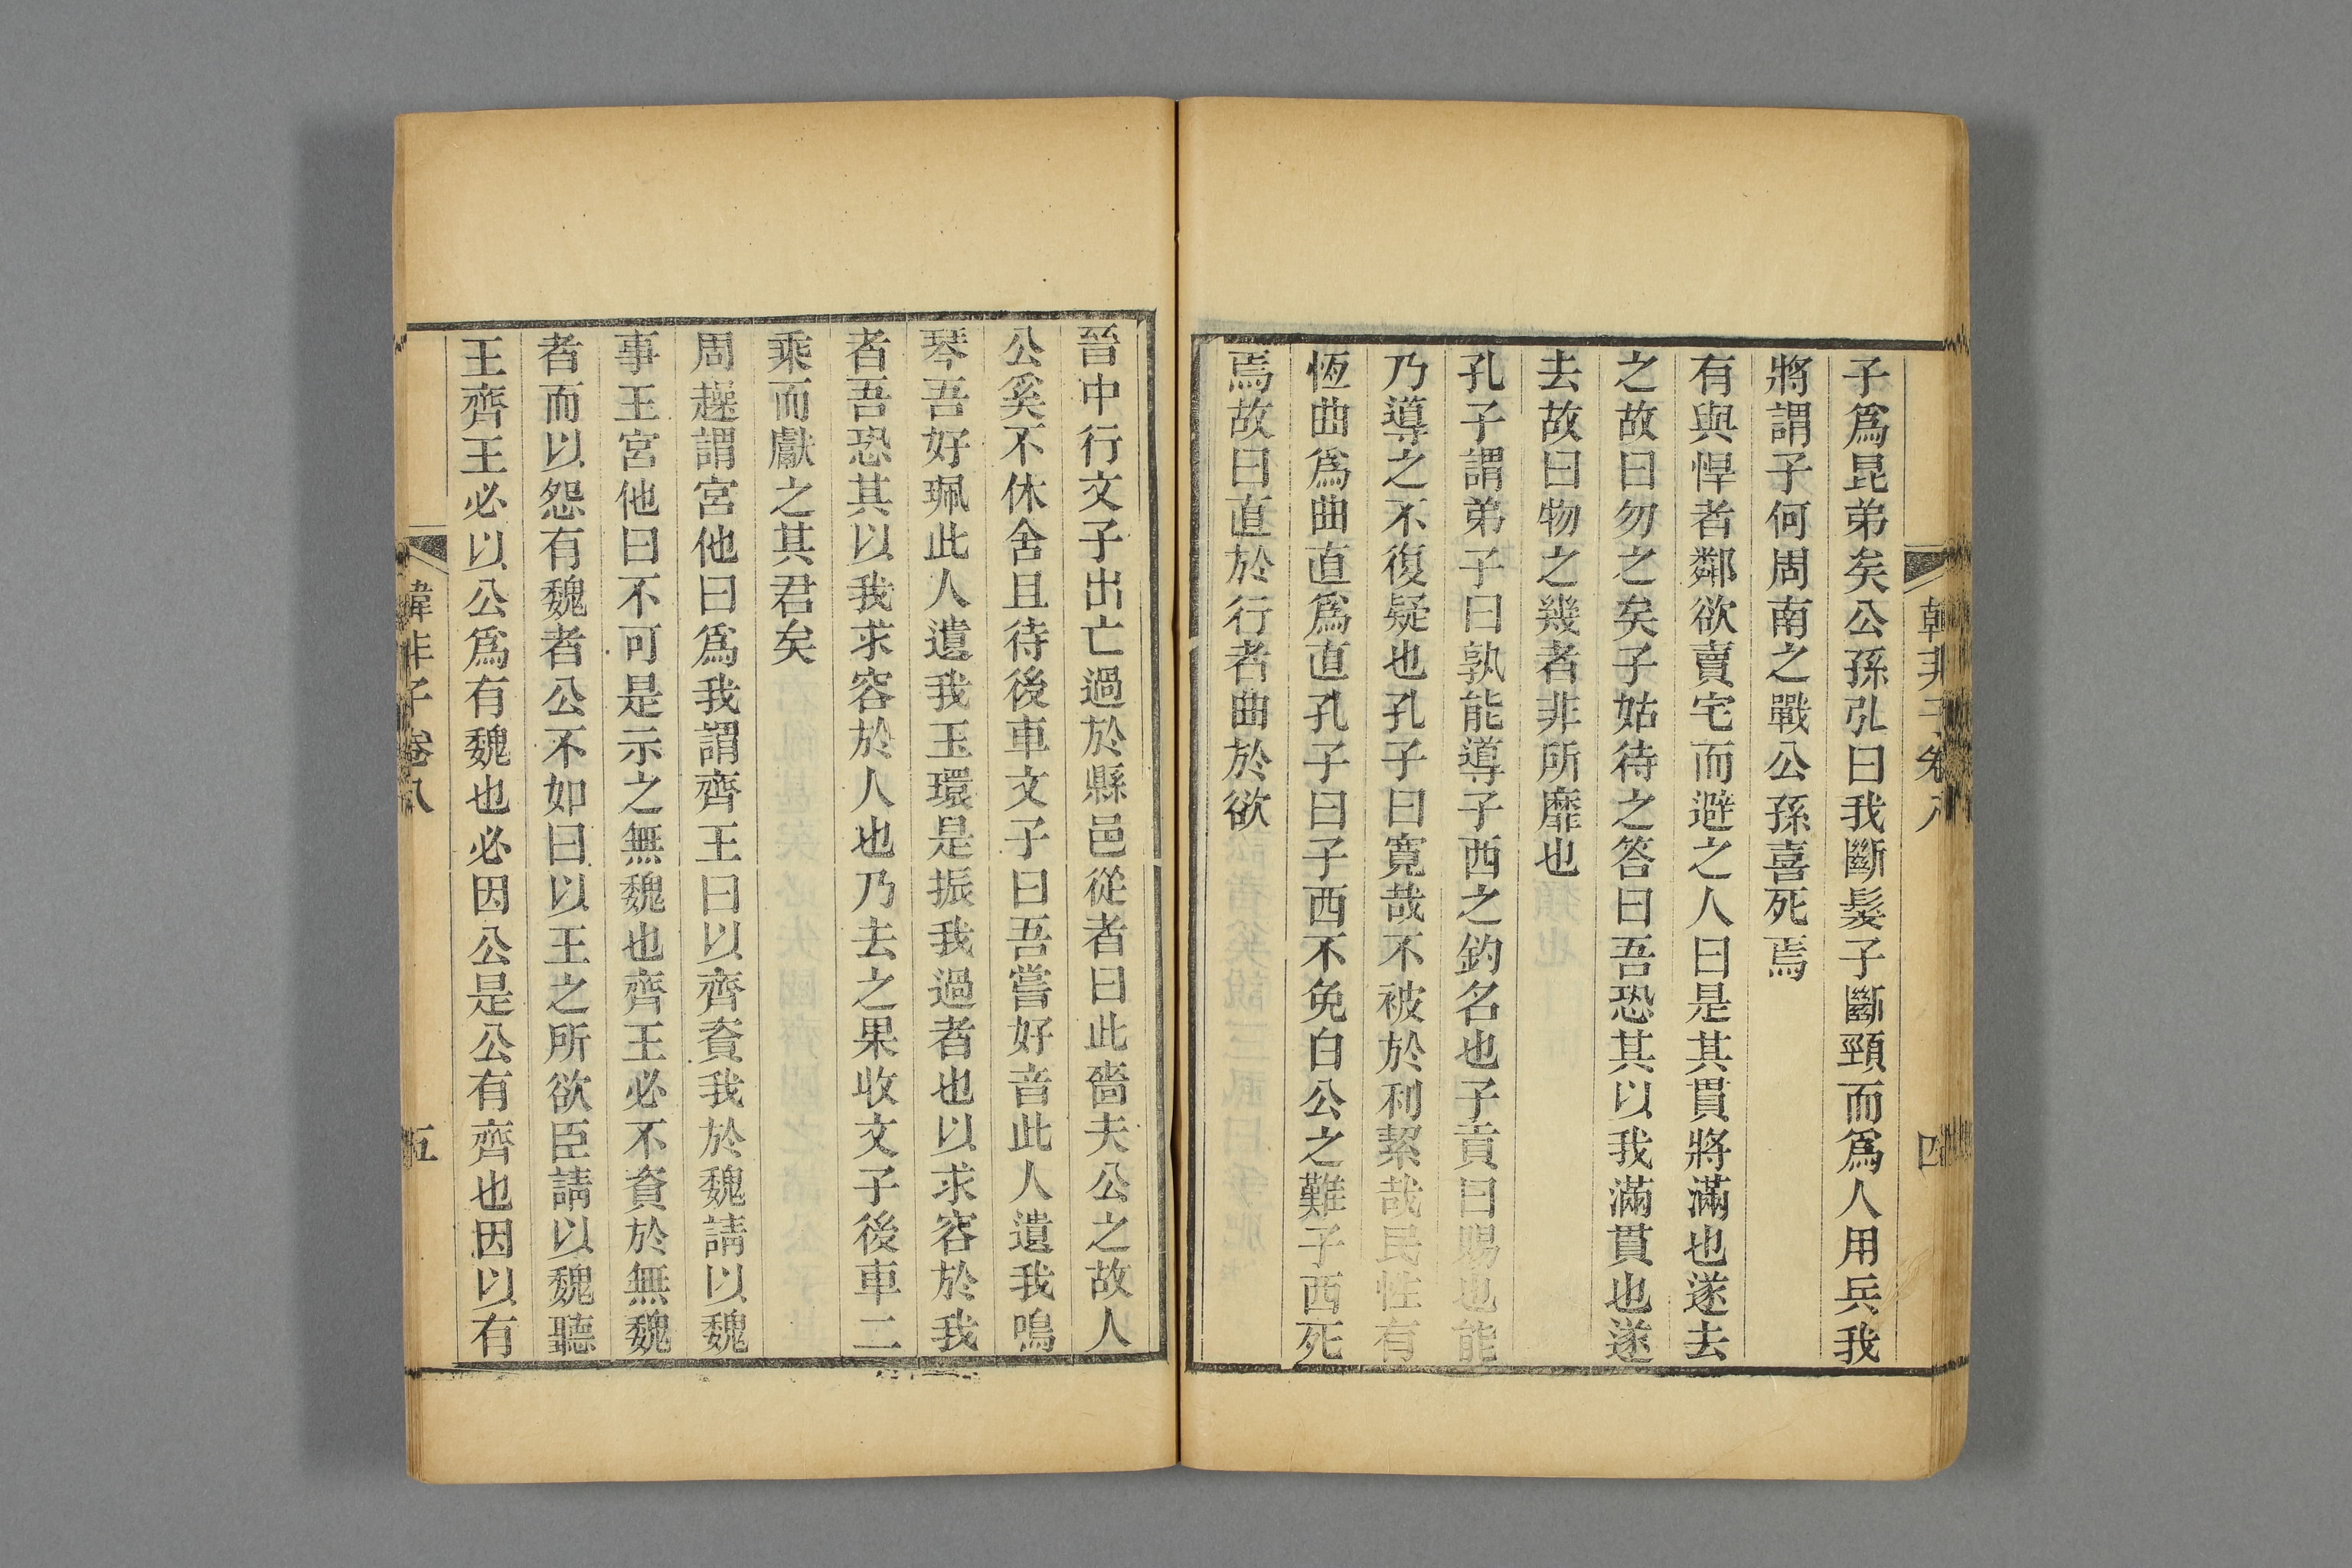 韓非子卷八
四
子爲昆弟矣公孫弘曰我斷髮子斷頸而爲人用兵我
將謂子何周南之戰公孫喜死焉
有與悍者鄰欲賣宅而避之人曰是其貫將滿也遂去
之故曰勿之矣子姑待之答曰吾恐其以我滿貫也遂
去故曰物之幾者非所靡也
孔子謂弟子曰孰能導子西之釣名也子貢曰賜也能
乃導之不復疑也孔子曰寬哉不被於利絜哉民性有
恆曲爲曲直爲直孔子曰子西不免白公之難子西死
焉故曰直於行者曲於欲
晉中行文子出亡過於縣邑從者曰此嗇夫公之故人
公奚不休舍且待後車文子曰吾嘗好音此人遺我鳴
琴吾好珮此人遺我玉環是振我過者也以求容於我
者吾恐其以我求容於人也乃去之果收文子後車二
乘而獻之其君矣
周趮謂宮他曰爲我謂齊王曰以齊資我於魏請以魏
事王宮他曰不可是示之無魏也齊王必不資於無魏
者而以怨有魏者公不如曰以王之所欲臣請以魏聽
王齊王必以公爲有魏也必因公是公有齊也因以有
韓非子卷八
五